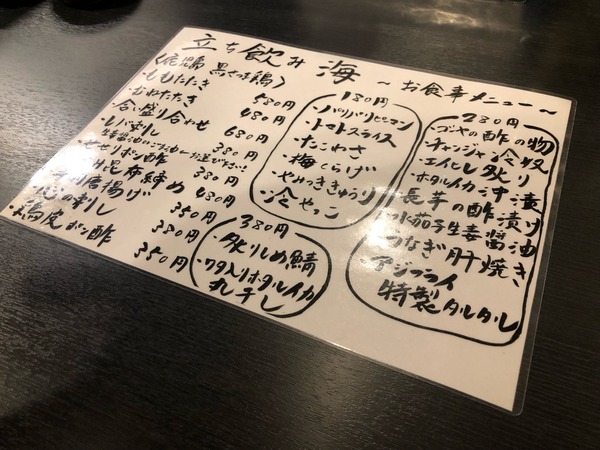 立ち飲み 海 ～お食事メニュー～
〈鹿児島 黒さつま鶏〉
ももたたき 580円
むねたたき 480円
合い盛り合わせ 680円
レバ刺し 380円
せせりポン酢 380円
昆布締め 480円
唐揚げ 350円
心の刺し 380円
ポン酢 350円
180円
・バリバリピーマン
・トマトスライス
・たこわさ
・梅くらげ
・やみつききゅうり
・冷やっこ
380円
・炙りしめ鯖
・ワタ入りホタルイカ
丸干し
280円
・ゴーヤの酢の物
・チャンジャ冷奴
・エイヒレ炙り
・ホタルイカ沖漬
・長芋の酢漬け
・水茄子生姜醤油
・うなぎ肝焼き
・アジフライ
特製タルタル